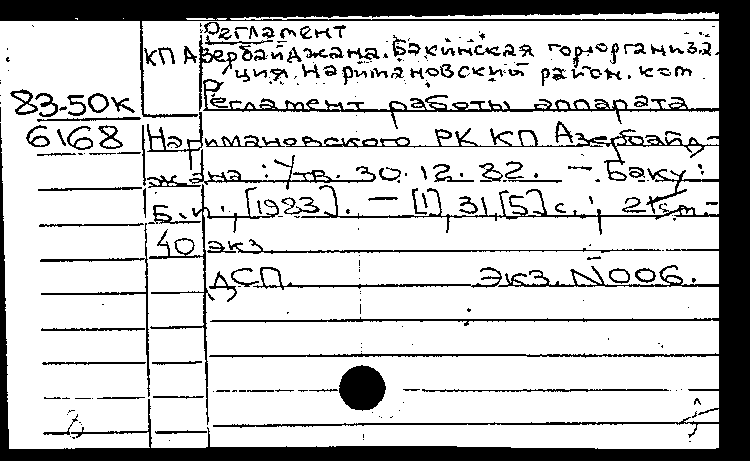 Регламент
КП Азербайджана. Бакинская горорганиза-
ция. Наримановский район. ком
83-50к
Регламент работы аппарата
6168 Наримановского РК КП Азербайд-
жана: Утв. 30.12.82. — Баку:
Б.и., [1983]. — [1], 31, [5] с.; 21 см. —
40 экз.
ДСП. Экз. N 006.
8